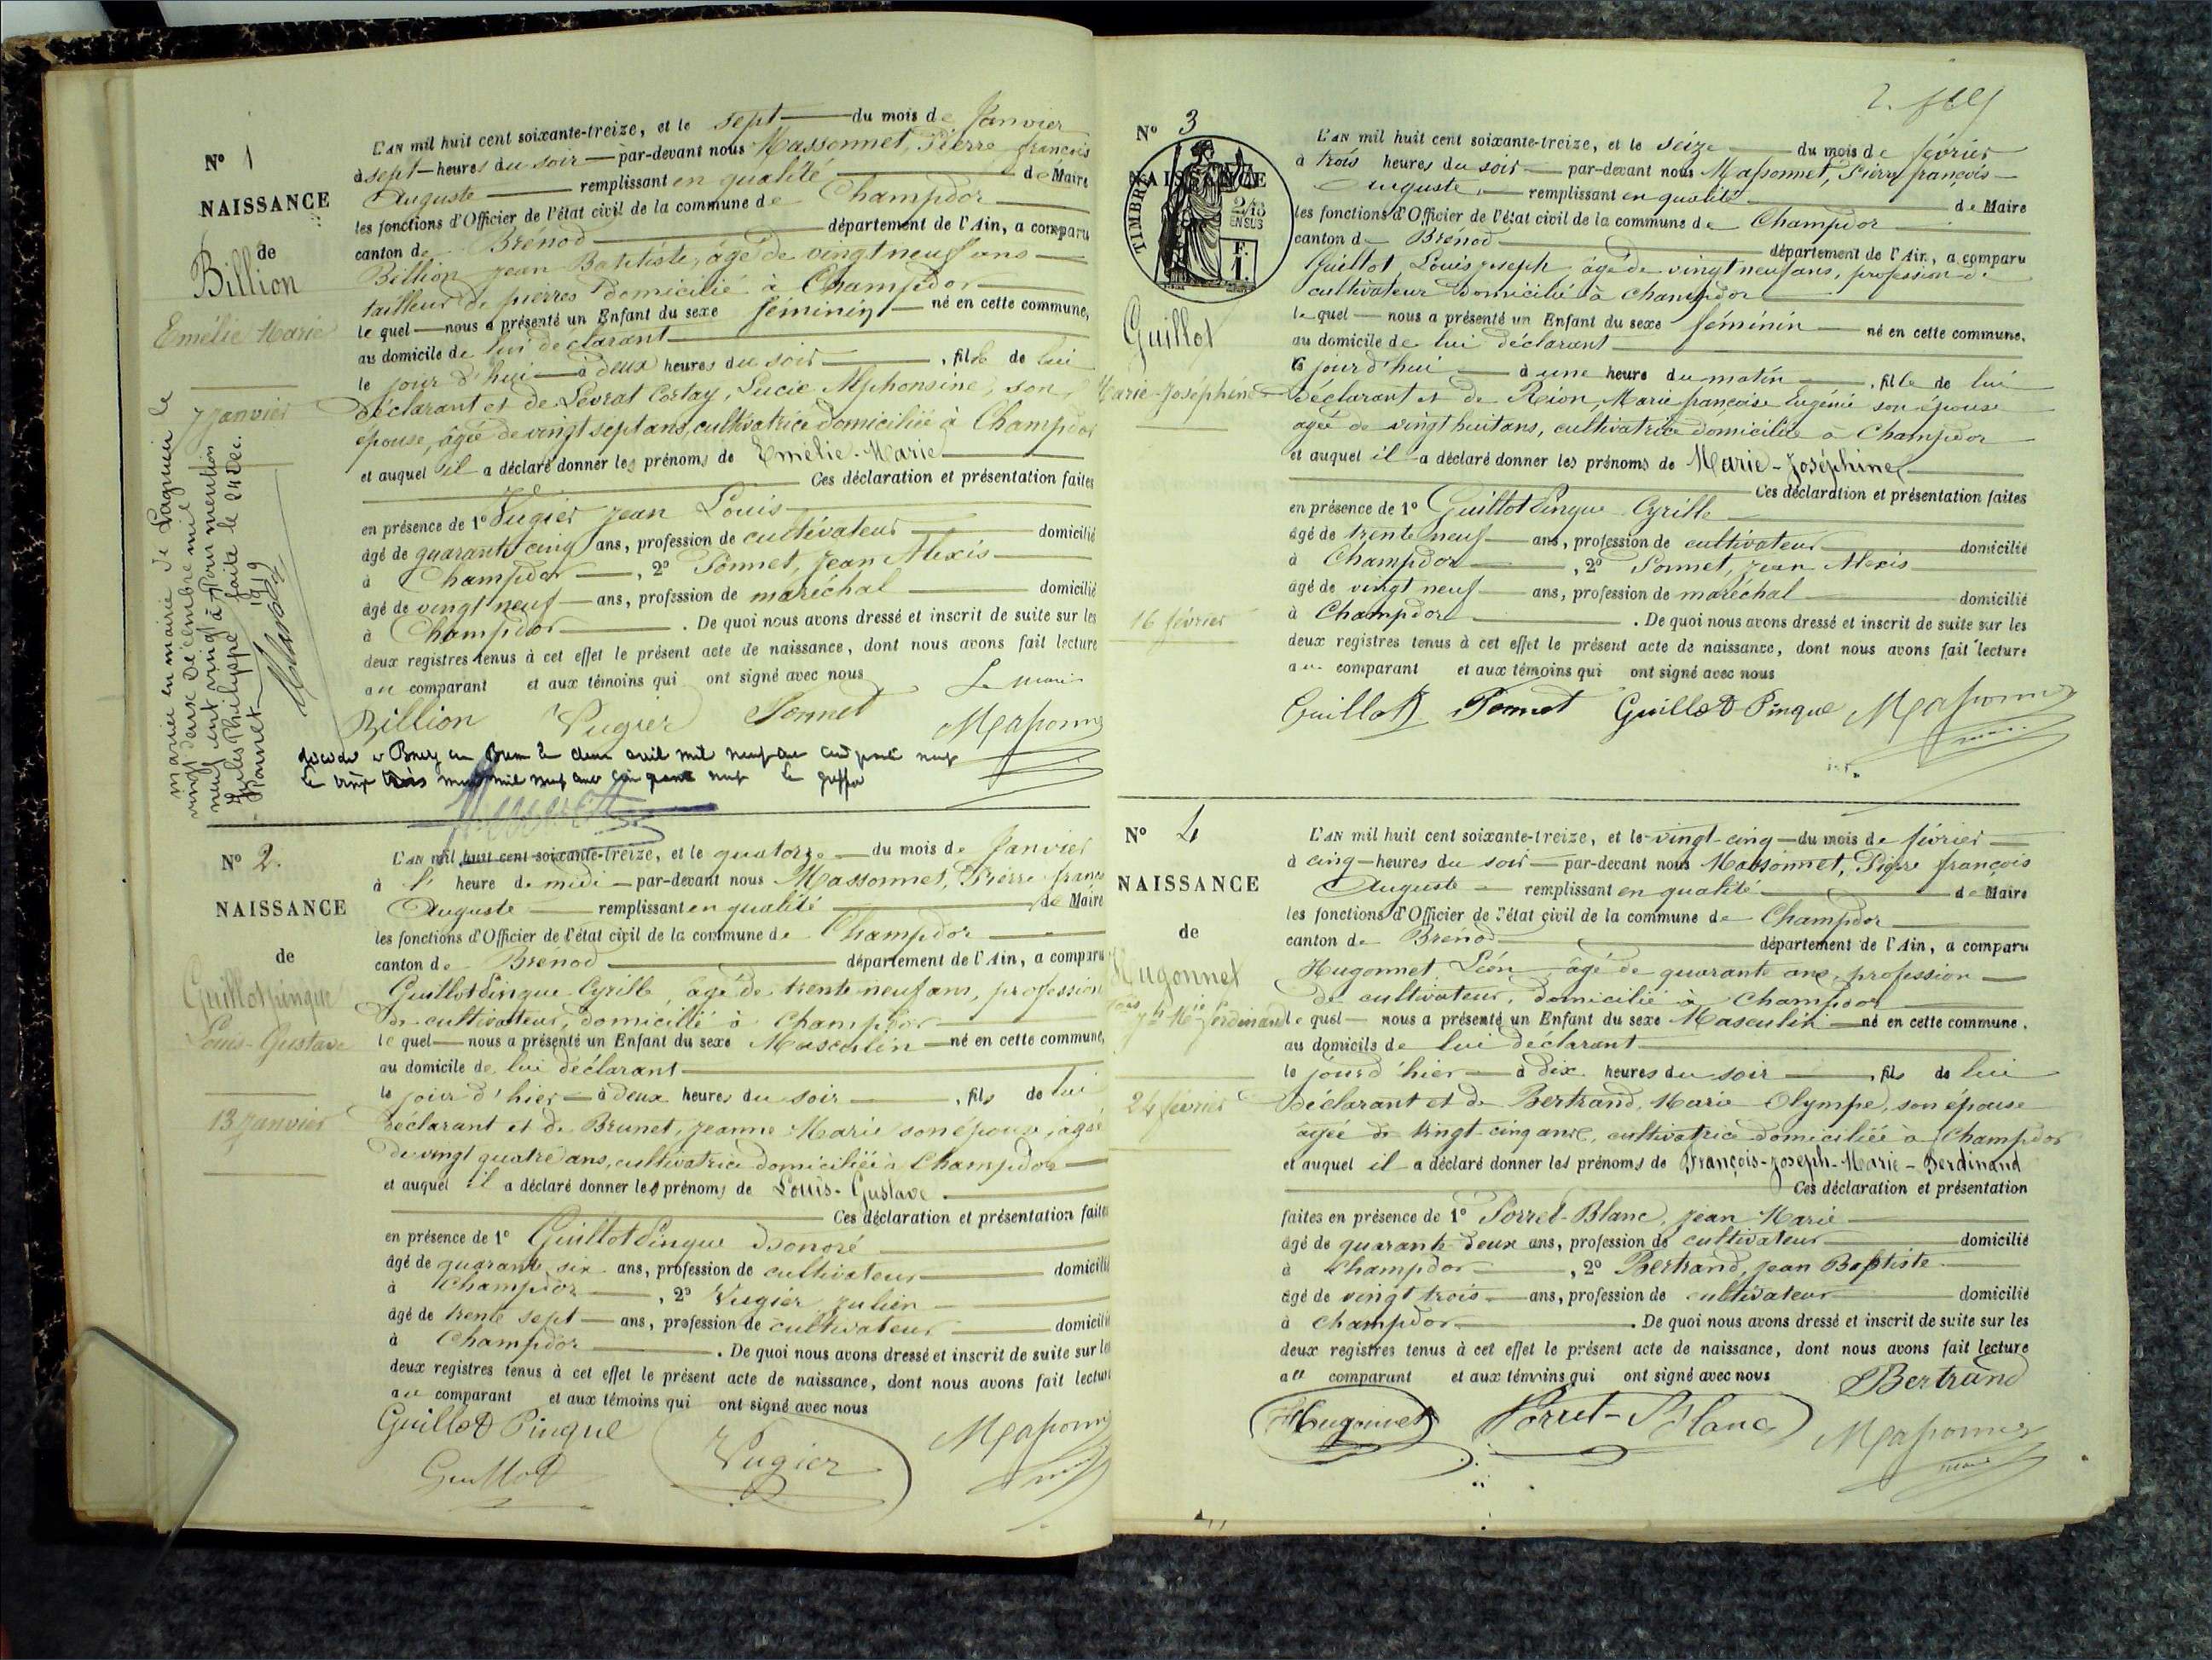 N° 1
NAISSANCE
de
Billion
Emélie Marie
7 janvier
mariée en mairie de Lagnieu le
vingt deux Décembre mil
neuf cent vingt à
Jules Philippe
Pour mention
faite le 24 Dec.
L'AN mil huit cent soixante-treize, et le sept du mois de Janvier
à sept heures du soir par-devant nous Massonnet, Pierre françois
Auguste remplissant en qualité de Maire
les fonctions d'Officier de l'état civil de la commune de Champdor
canton de Brénod département de l'Ain, a comparu
Billion jean Batitiste, âgé de vingt neuf ans
tailleur de pierres domicilié à Champdor
le quel nous a présenté un Enfant du sexe féminin né en cette commune,
au domicile de lui déclarant
le jour d'hui à deux heures du soir, fille de lui
déclarant et de Levrat Cortay, Lucie Alphonsine, son
épouse, âgée de vingt sept ans, cultivatrice domiciliée à Champdor
et auquel il a déclaré donner les prénoms de Emélie-Marie
Ces déclaration et présentation faites
en présence de 1° Vugier jean Louis
âgé de quarante cinq ans, profession de cultivateur domicilié
à Champdor, 2° Tonnet, jean Alexis
âgé de vingt neuf ans, profession de maréchal domicilié
à Champdor. De quoi nous avons dressé et inscrit de suite sur les
deux registres tenus à cet effet le présent acte de naissance, dont nous avons fait lecture
au comparant et aux témoins qui ont signé avec nous
Le maire
Billion Vugier Tonnet Massonnet
N° 2.
NAISSANCE
de
Guillot pingue
Louis-Gustave
13 janvier
L'AN mil huit cent soixante-treize, et le quatorze du mois de Janvier
à l' heure de midi par-devant nous Massonnet, Pierre franço
Auguste remplissant en qualité de Maire
les fonctions d'Officier de l'état civil de la commune de Champdor
canton de Brénod département de l'Ain, a comparu
Guillot Pingue Cyrille, âgé de trente neuf ans, profession
de cultivateur, domicilié à Champdor
le quel nous a présenté un Enfant du sexe Masculin né en cette commune,
au domicile de lui déclarant
le jour d'hier à deux heures du soir, fils de lui
déclarant et de Brunet, jeanne Marie son épouse, âgée
de vingt quatre ans, cultivatrice domiciliée à Champdor
et auquel il a déclaré donner les prénoms de Louis-Gustave.
Ces déclaration et présentation faites
en présence de 1° Guillot Pingue honoré
âgé de quarante six ans, profession de cultivateur domicilié
à Champdor, 2° Vugier julien
âgé de trente sept ans, profession de cultivateur domicilié
à Champdor. De quoi nous avons dressé et inscrit de suite sur les
deux registres tenus à cet effet le présent acte de naissance, dont nous avons fait lecture
au comparant et aux témoins qui ont signé avec nous
Guillot Pingue Massonnet
Guillot Vugier
N° 3
NAISSANCE
TIMBRE
2/10
EN SUS
F.
1.
Guillot
Marie-Joséphine
16 février
L'AN mil huit cent soixante-treize, et le seize du mois de février
à trois heures du soir par-devant nous Massonnet, Pierre françois
Auguste, remplissant en qualité de Maire
les fonctions d'Officier de l'état civil de la commune de Champdor
canton de Brénod département de l'Ain, a comparu
Guillot, Louis joseph, âgé de vingt neuf ans, profession de
cultivateur domicilié à Champdor
le quel nous a présenté un Enfant du sexe féminin né en cette commune.
au domicile de lui déclarant
le jour d'hui à une heure du matin, fille de lui
déclarant et de Reion, Marie françoise Eugénie son épouse
agée de vingt huit ans, cultivatrice domiciliée à Champdor
et auquel il a déclaré donner les prénoms de Marie-Joséphine
Ces déclaration et présentation faites
en présence de 1° Guillot Pingue Cyrille
âgé de trente neuf ans, profession de cultivateur domicilié
à Champdor, 2° Tonnet, jean Alexis
âgé de vingt neuf ans, profession de maréchal domicilié
à Champdor. De quoi nous avons dressé et inscrit de suite sur les
deux registres tenus à cet effet le présent acte de naissance, dont nous avons fait lecture
au comparant et aux témoins qui ont signé avec nous
Guillot Tonnet Guillot Pingue Massonnet
N° 4
NAISSANCE
de
Hugonnet
24 février
L'AN mil huit cent soixante-treize, et le vingt-cinq du mois de février
à cinq heures du soir par-devant nous Massonnet, Pierre françois
Auguste remplissant en qualité de Maire
les fonctions d'Officier de l'état civil de la commune de Champdor
canton de Brénod département de l'Ain, a comparu
Hugonnet Léon, âgé de quarante ans, profession
de cultivateur, domicilié à Champdor
le quel nous a présenté un Enfant du sexe Masculin né en cette commune.
au domicile de lui déclarant
le jour d'hier à dix heures du soir, fils de lui
déclarant et de Bertrand, Marie Olympe, son épouse
agée de vingt-cinq ans, cultivatrice domiciliée à Champdor
et auquel il a déclaré donner les prénoms de François-Joseph-Marie-Ferdinand
Ces déclaration et présentation
faites en présence de 1° Porret-Blanc, jean Marie
âgé de quarante deux ans, profession de cultivateur domicilié
à Champdor, 2° Bertrand, jean Baptiste
âgé de vingt trois ans, profession de cultivateur domicilié
à Champdor. De quoi nous avons dressé et inscrit de suite sur les
deux registres tenus à cet effet le présent acte de naissance, dont nous avons fait lecture
au comparant et aux témoins qui ont signé avec nous
Bertrand
Hugonnet Porret-Blanc Massonnet